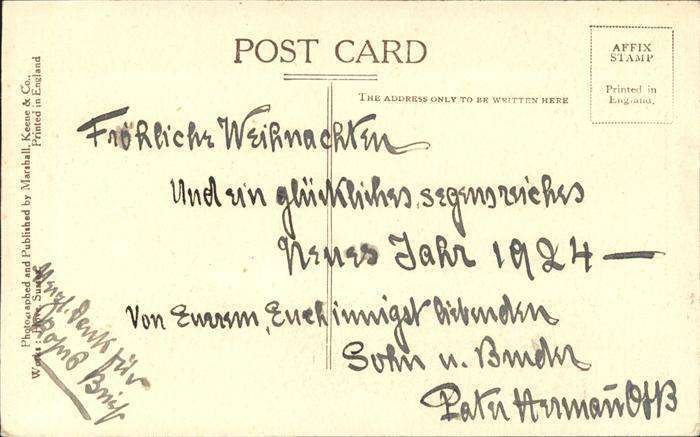 POST CARD
AFFIX
STAMP
Printed in
England.
THE ADDRESS ONLY TO BE WRITTEN HERE
Fröhliche Weihnachten
Und ein glückliches, segensreiches
Neues Jahr 1924 —
Von Eurem, Euch innigst liebenden
Sohn u. Bruder
Pater Herman̄ OSB
Photographed and Published by Marshall, Keene & Co.,
Printed in England
Works: Hove, Sussex
Herzl. Dank für
Brief